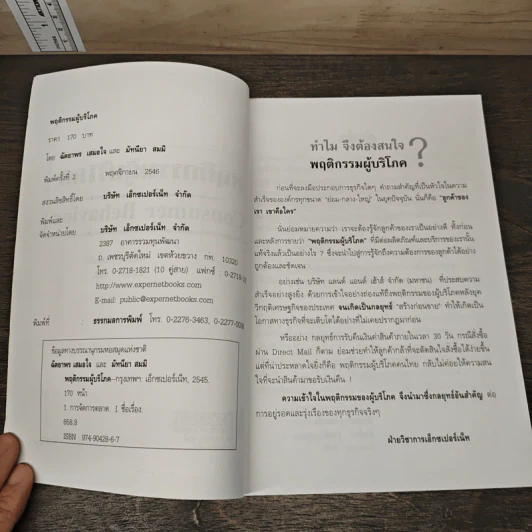 พฤติกรรมผู้บริโภค
ราคา 170 บาท
โดย ฉัตยาพร เสมอใจ และ มัทนียา สมมิ
พิมพ์ครั้งที่ 2 พฤศจิกายน 2546
สงวนลิขสิทธิ์โดย บริษัท เอ็กซเปอร์เน็ท จำกัด
พิมพ์และ
จัดจำหน่ายโดย บริษัท เอ็กซเปอร์เน็ท จำกัด
2387 อาคารรวมทุนพัฒนา
ถ. เพชรบุรีตัดใหม่ เขตห้วยขวาง กท. 10320
โทร. 0-2718-1821 (10 คู่สาย) แฟกซ์ 0-2718-18
http://www.expernetbooks.com
E-mail: public@expernetbooks.com
พิมพ์ที่ : ธรรกมลการพิมพ์ โทร. 0-2276-3463, 0-2277-9008
ข้อมูลทางบรรณานุกรมหอสมุดแห่งชาติ
ฉัตยาพร เสมอใจ และ มัทนียา สมมิ
พฤติกรรมผู้บริโภค--กรุงเทพฯ: เอ็กซเปอร์เน็ท, 2545.
170 หน้า
1. การจัดการตลาด. I. ชื่อเรื่อง.
658.8
ISBN 974-90428-6-7
ทำไม จึงต้องสนใจ
พฤติกรรมผู้บริโภค ?
ก่อนที่จะลงมือประกอบการธุรกิจใดๆ คำถามสำคัญที่เป็นหัวใจในความ
สำเร็จขององค์กรทุกขนาด "ย่อม-กลาง-ใหญ่" ในยุคปัจจุบัน นั่นก็คือ "ลูกค้าของ
เรา เขาคือใคร"
นั่นย่อมหมายความว่า เราจะต้องรู้จักลูกค้าของเราเป็นอย่างดี ทั้งก่อน
และหลังการขายว่า "พฤติกรรมผู้บริโภค" ที่มีต่อผลิตภัณฑ์และบริการของเรานั้น
แท้จริงแล้วเป็นอย่างไร ? ซึ่งจะนำไปสู่การรู้จักถึงความต้องการของลูกค้าได้อย่าง
ถูกต้องและชัดเจน
อย่างเช่น บริษัท แลนด์ แอนด์ เฮ้าส์ จำกัด (มหาชน) ที่ประสบความ
สำเร็จอย่างสูงยิ่ง ด้วยการเข้าใจอย่างถ่องแท้ถึงพฤติกรรมของผู้บริโภคหลังยุค
วิกฤติเศรษฐกิจของประเทศ จนเกิดเป็นกลยุทธ์ "สร้างก่อนขาย" ทำให้เกิดเป็น
โอกาสทางธุรกิจที่จะเติบโตได้อย่างที่ไม่เคยปรากฏมาก่อน
หรืออย่าง กลยุทธ์การรับคืนเงินค่าสินค้าภายในเวลา 30 วัน กรณีสั่งซื้อ
ผ่าน Direct Mail ก็ตาม ย่อมช่วยทำให้ลูกค้ากล้าที่จะตัดสินใจสั่งซื้อได้ง่ายขึ้น
แต่ที่น่าประหลาดใจยิ่งก็คือ พฤติกรรมผู้บริโภคคนไทย กลับไม่ค่อยให้ความสน
ใจที่จะนำสินค้ามาขอรับเงินคืน !
ความเข้าใจในพฤติกรรมของผู้บริโภค จึงนำมาซึ่งกลยุทธ์อันสำคัญ ต่อ
การอยู่รอดและรุ่งเรืองของทุกธุรกิจจริงๆ
ฝ่ายวิชาการเอ็กซเปอร์เน็ท